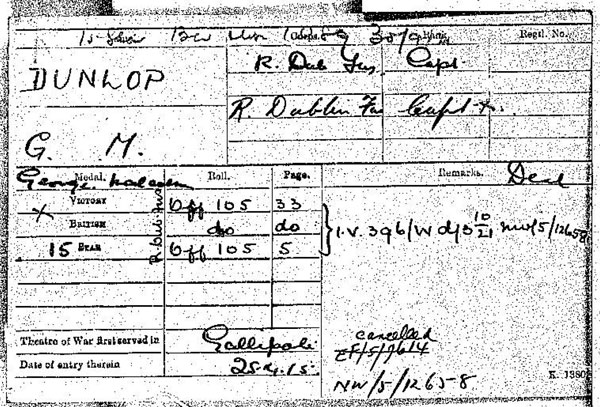 Corps. Rank. Regtl. No.
DUNLOP
G. M.
R. Dub Fus. Capt
R. Dublin Fus Capt x.
George Malcolm
Medal. Roll. Page. Remarks. Dead
x VICTORY Off 105 33
BRITISH do do
15 STAR Off 105 5
R. Dub. Fus
I.V. 396/W d/5 10/21 NW/5/12658
Theatre of War first served in Gallipoli
Date of entry therein 25.4.15
cancelled
EF/5/7614
NW/5/12658
K. 1380